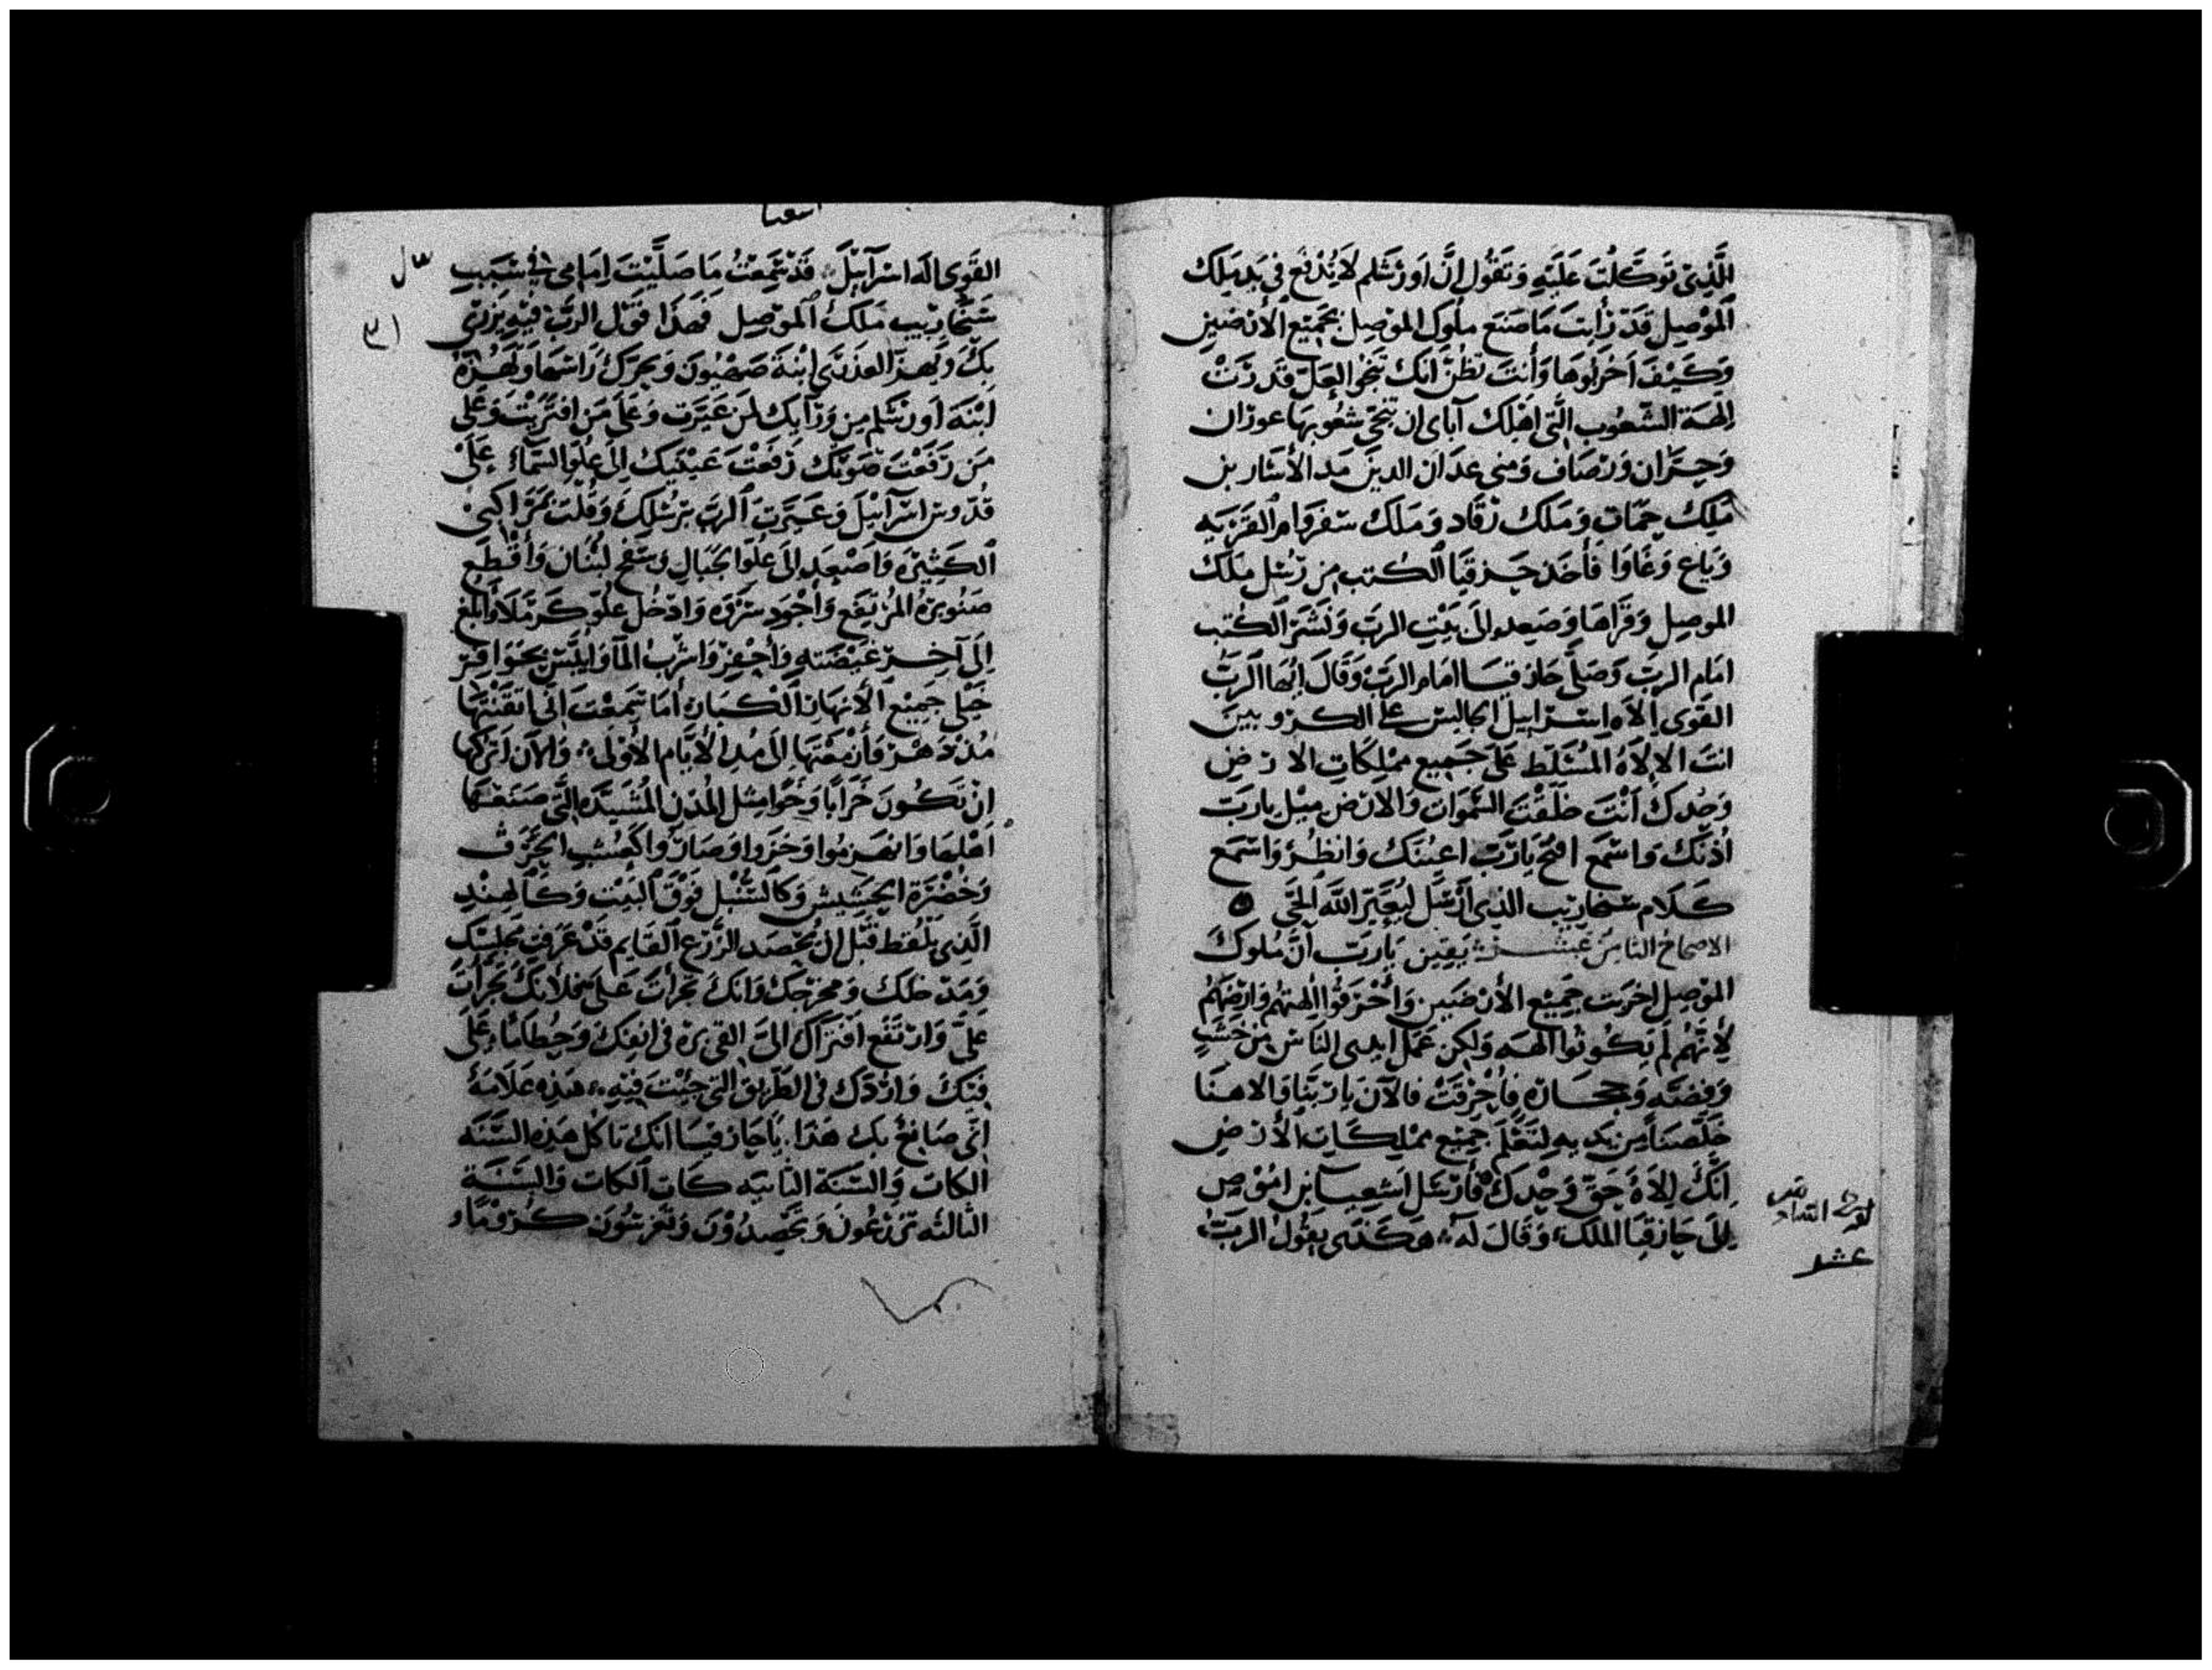 الَّذِي تَوَكَّلْتَ عَلَيْهِ وَتَقُول إنَّ اورَشلم لَا تُدْفَع في يَد مَلِك
المَوْصِل قَدْ رَأيتَ مَا صَنَع ملُوك الموْصِل بجَمِيْع الأرْضين
وَكَيْفَ اَخرَبُوهَا وَأَنتَ تَظُنّ انّك تَنجُوا لعَلّ قَدرَتْ
الِهَة الشُّعُوب الَّتِي اهْلك آباى ان تنجّى شعُوبهَا عوزان
وَحَرَّان وَرَصَاف وَمنى عدَان الدينَ
مَلِك حَمَاة وَمَلك رْفَاد وَمَلك سَفروَام القَرْيَه
وَيَاع وَعَاوَا فَأَخَذ حَزقيَا الكُتب مِن رُسُل مَلك
الموصِل وَقَرَاهَا وَصَعِد الىَ بَيْتِ الربّ وَنَشَرَ الكُتب
امَام الربّ وَصَلَّى حَازقيَا امَام الربّ وَقَالَ ايُّهَا الرَّبّ
القَوى الَاه اسرَاييل الجَالِس على الكروبينَ
انتَ الالَاهُ المُسَلّط عَلى جَمِيع مملكَاتِ الارضِ
وَحْدكَ أنْتَ خَلَقْتَ السَّموَات وَالارْض ميل يارَبّ
أذنَك وَاسْمَع افتح يَارَبّ اعينَك وَانظُرْ وَاسْمَع
كَلَام سَنحاريب الذي أَرْسَل ليُعَيّر اللّه الحَيّ
الاصحاحُ الثامن عَشر يَقِين يَارَبّ أنَّ مُلوكَ
الموصِل اخرَبت جَمِيْع الأرْضَين وَأحْرَقُوا الِهتهُم وَارضهُم
لِأنّهُم لَم يَكُونُوا الِهَه وَلكن عَمَل ايدى النّاس مِن خشبٍ
وَفضَّه وَحجَارة فاحْرقَتْ فالآنَ يَارَبّنَا وَالاهنَا
خَلّصنَا مِن يَديهِ لتَعْلَم جَمِيْع مَملكَات الأرْض
انّكَ الِاهٌ حَقّ وَحْدكَ فَأرْسَل اشعيَا بْن امُوص
إلىَ حَازقيَا المَلك وَقَالَ لَهُ هَكَذى يقُولُ الربّ
لوقت السادس
عشر
اشعيا
القَوى اله اسْرَآييْل قَدْ سَمِعْتُ مَا صَلَّيْتَ امَامى في سَبَبِ
سَنْحَاريْب مَلك المَوْصِل فهَذَا قَول الرَّبّ فيْهِ يَزْرى
بكَ وَيَهزأ العَذرَى ابْنَة صَهْيُونَ وَيحرّك رَاسهَا وَلَهُزهُ
ابْنَة اورَشلم مِن وَرَآيك لمَن عَيَّرت وَعَلَى مَن افترَيْتَ وَعَلى
مَن رَفَعْتَ صَوتَك رَفَعْتَ عَيْنَيك إلىَ عُلو السّمَاء عَلَى
قُدّوس اسْرَآييل وَعَيّرتَ الربّ برُسُلِكَ وَقُلْتَ بمَراكبى
الكَثِيْرَه وَاَصْعَد الىَ عُلُو الجبَالِ وَسَفْح لُبْنان وَأقْطَع
صنوبرهُ المُرتفِع وَأجْوَد سَروَه وَادْخل عُلو كَرمَلَا وَأَبلغ
إلىَ آخِر غيْضَتهِ وَأحْفِر وَاشْرَب المَآ وَايَبّس بحَوَافِر
خَيْلى جَميْع الأنهَار الكبَار أمَا سَمِعْتَ انّى اتقَنْتهَا
مُنْذ دَهْر وَأزمَعتهَا الىَ مُدا الأيّام الأُوْلى وَالآن لترَكهَا
انْ تَكُونَ خَرَابًا وَخَوَا مثل المُدنِ المُشَيّدَه التّى صَنعَهَا
اهْلهَا وَانهَزمُوا وَخزوا وَصَارُوا كعُشب الحرف
وَخُضْرَة الحَشِيش وَكالسُّنْبُل فَوْقَ البَيْت وَكالهنْدِ
الَّذِى يُلْقط قَبْل انْ يُحْصَد الزَّرْع القَايم قَدْ عَرَفت مجْلسَك
وَمَدْخلك وَمخرَجك وَانّكَ تجرأتَ عَلىَّ مجلا انّكَ تجرأتَ
عَلىَّ وَارْتَفَع افترَاك الىَ القى برّه في انفِكَ وَحِطامًا عَلى
فَمكَ وَاردّك في الطّريق التّى جيْتَ فيْهِ هَذِهِ علَامَةٌ
انّى صَانعٌ بك هَذا يَاحَازقيَا انّك تَاكل هَذِه السّنَه
الكات وَالسّنَة الثانيَه كَات الكات وَالسّنَة
الثالثه تزرَعُونَ وَتحْصِدُوْنَ وَتغرسُونَ كُرُوْمًا و